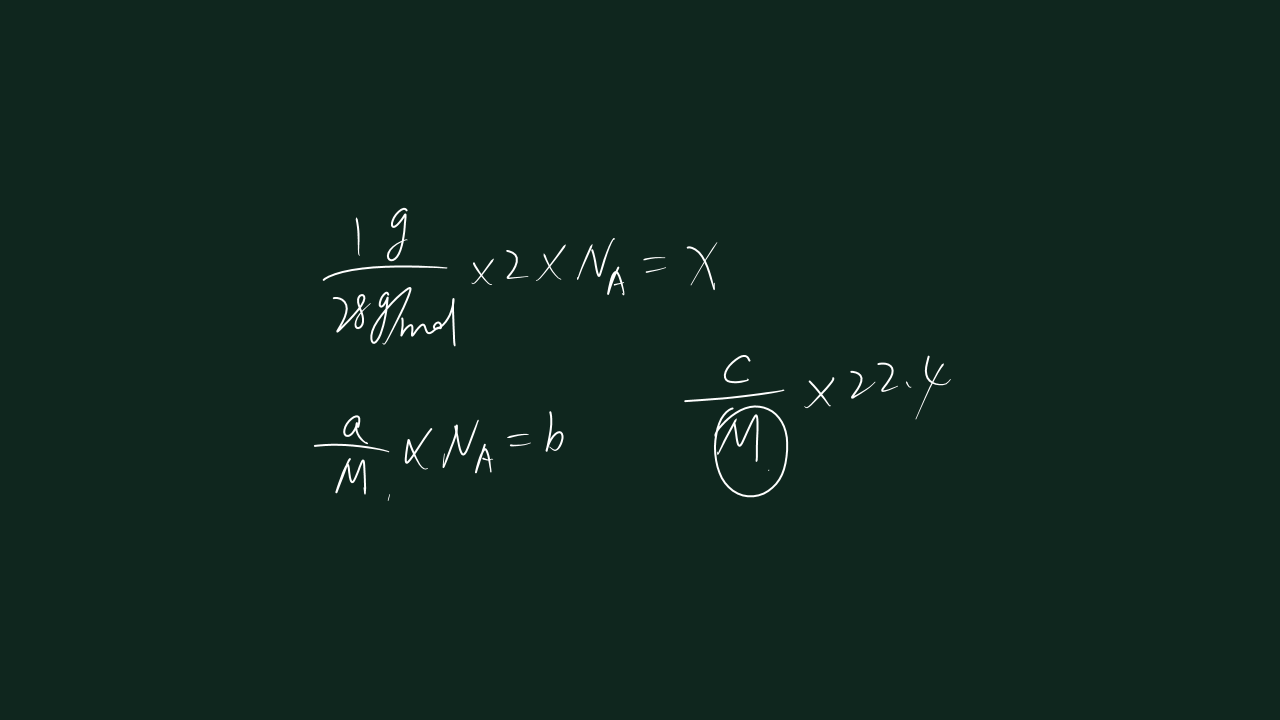 1g/28g/mol × 2 × N_A = x
a/M × N_A = b
c/M × 22.4